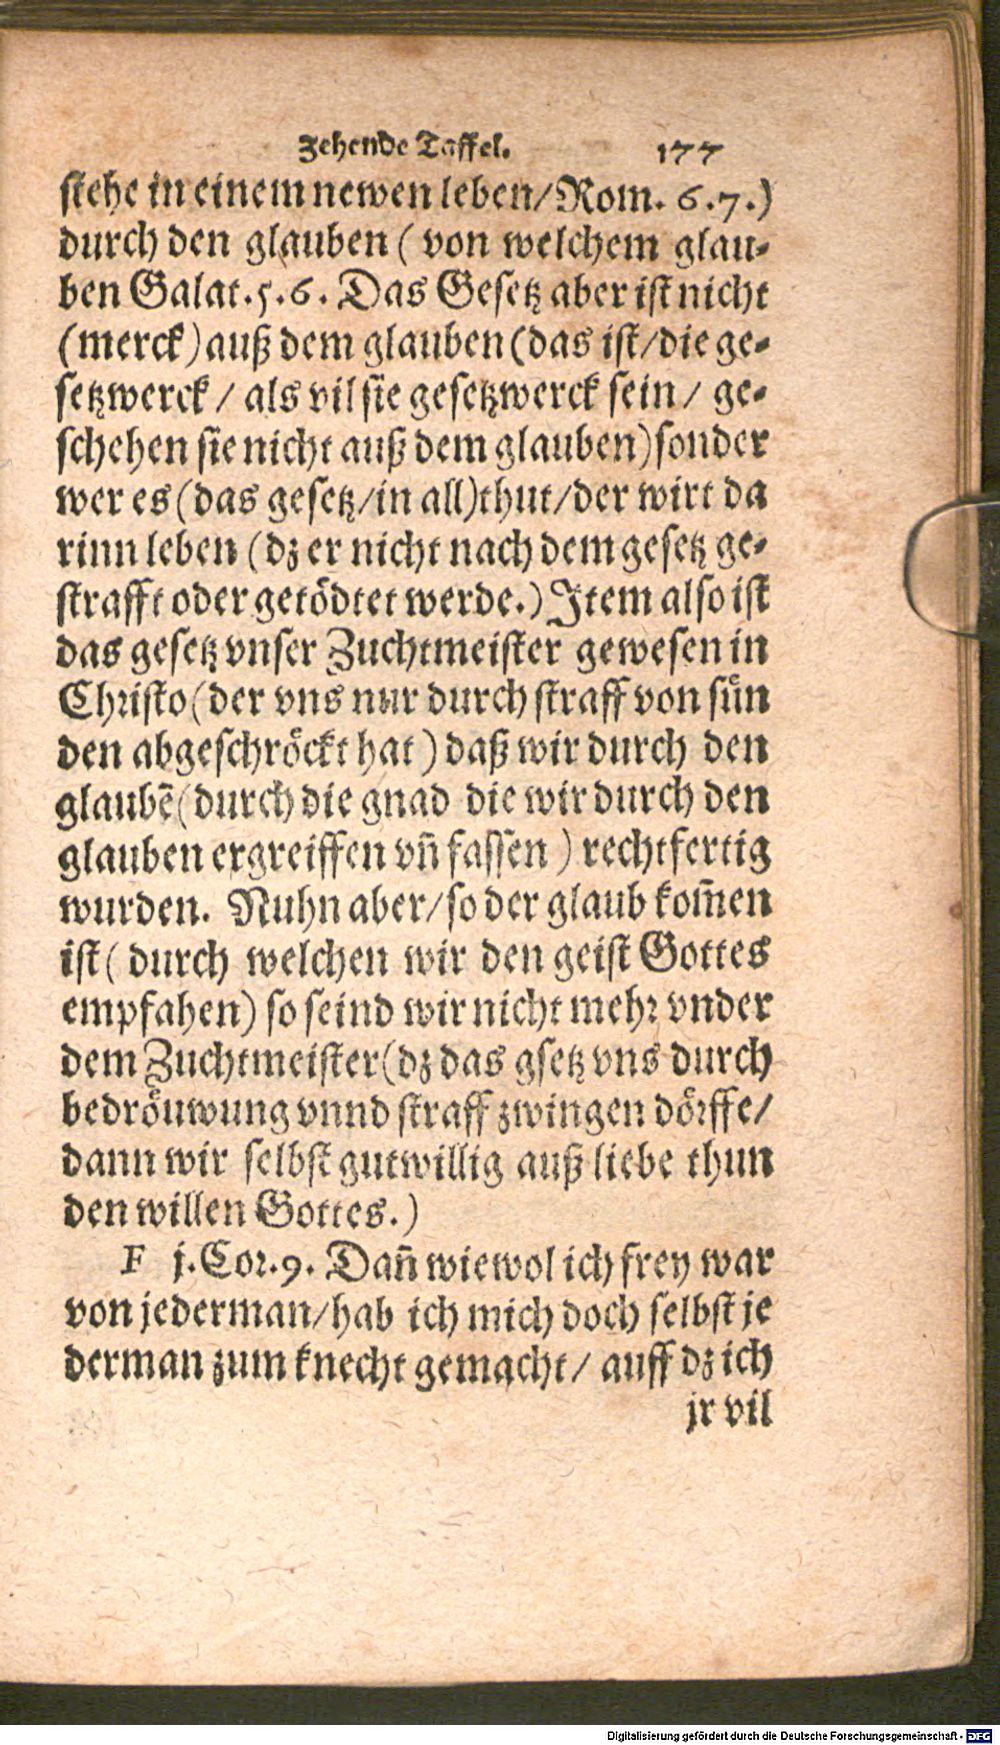 Zehende Taffel. 177
stehe in einem newen leben/Rom. 6.7.)
durch den glauben ( von welchem glau-
ben Galat.5.6. Das Gesetz aber ist nicht
(merck) auß dem glauben (das ist/die ge-
setzwerck / als vil sie gesetzwerck sein / ge-
schehen sie nicht auß dem glauben) sonder
wer es (das gesetz/in all) thut/der wirt da
rinn leben (dz er nicht nach dem gesetz ge-
strafft oder getödtet werde.) Item also ist
das gesetz vnser Zuchtmeister gewesen in
Christo (der vns nur durch straff von sün
den abgeschröckt hat ) daß wir durch den
glaubē (durch die gnad die wir durch den
glauben ergreiffen vn̄ fassen ) rechtfertig
wurden. Nuhn aber/so der glaub kom̄en
ist ( durch welchen wir den geist Gottes
empfahen) so seind wir nicht mehr vnder
dem Zuchtmeister (dz das gsetz vns durch
bedröuwung vnnd straff zwingen dörffe/
dann wir selbst gutwillig auß liebe thun
den willen Gottes.)
F j.Cor.9. Dan̄ wiewol ich frey war
von jederman/hab ich mich doch selbst je
derman zum knecht gemacht/ auff dz ich
jr vil
Digitalisierung gefördert durch die Deutsche Forschungsgemeinschaft - DFG